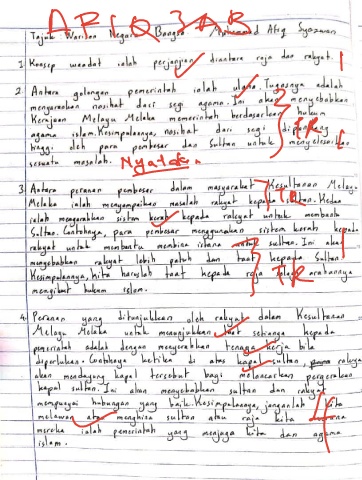 Tajuk: Warisan Negara Bangsa Muhammad Afiq Syazwan
1. Konsep waadat ialah perjanjian diantara raja dan rakyat.
2. Antara golongan pemerintah ialah ulama. Tugasnya adalah
menyarankan nasihat dari segi agama. Ini akan menyebabkan
Kerajaan Melayu Melaka memerintah berdasarkan hukum
agama islam. Kesimpulannya, nasihat dari segi dipandang
tinggi oleh para pembesar dan Sultan untuk menyelesaikan
sesuatu masalah. Nyatakan.
3. Antara peranan pembesar dalam masyarakat Kesultanan Melayu
Melaka ialah menyampaikan masalah rakyat kepada Sultan. Kedua
ialah mengenalkan sistem kerah kepada rakyat untuk membantu
Sultan. Contohnya, para pembesar menggunakan sistem kerah kepada
rakyat untuk membantu membina istana sultan. Ini akan
mengebabkan rakyat lebih patuh dan taat kepada Sultan
Kesimpulannya, kita haruslah taat kepada raja arahannya
mengikut hukum islam.
4. Peranan yang ditunjukkan oleh rakyat dalam Kesultanan
Melayu Melaka untuk menunjukkan taat setianya kepada
pemerintah adalah dengan menyerahkan tenaga kerja bila
diperlukan. Contohnya ketika di atas kapal sultan, rakyat
akan mendayung kapal tersebut bagi melancarkan pergerakan
kapal sultan. Ini akan menyebabkan sultan dan rakyat
mempunyai hubungan yang baik. Kesimpulannya, janganlah kita
melawan atau menghina sultan atau raja kita kerana
mereka ialah pemerintah yang menjaga kita dan agama
islam.